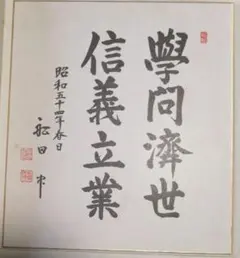 學問濟世
信義立業
昭和五十四年春日
船田中